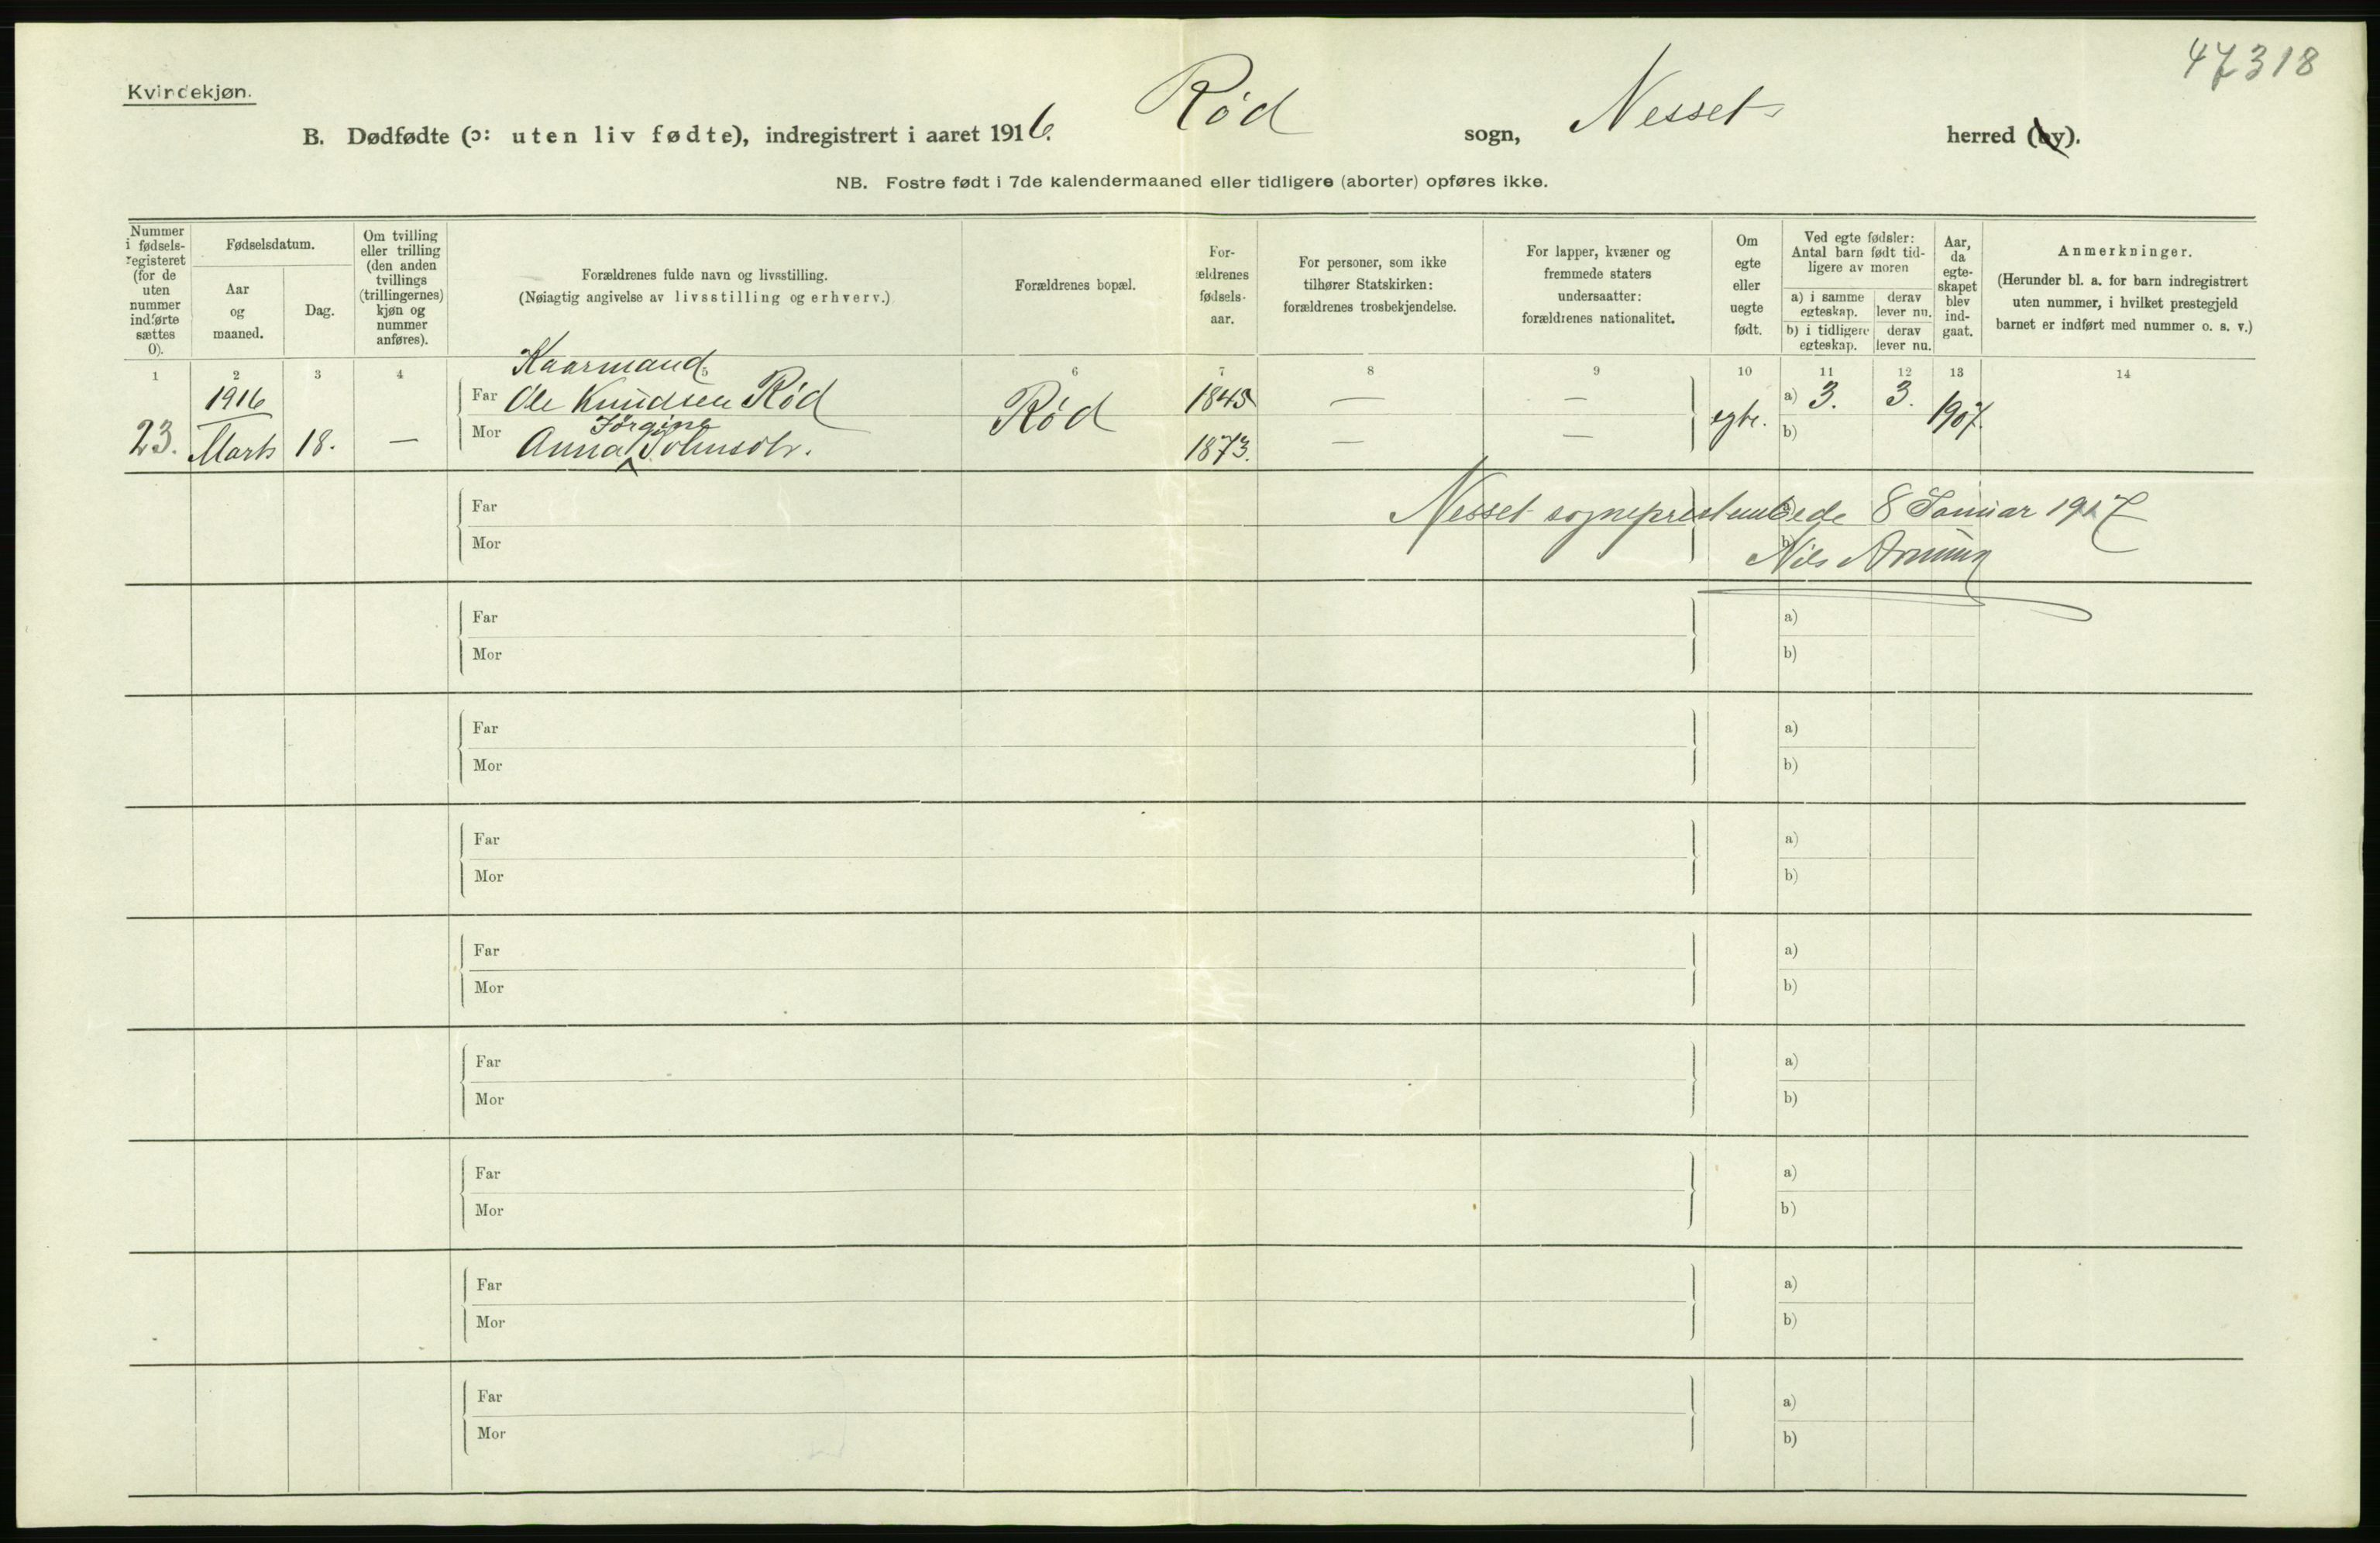 47318
Kvindekjøn.
B. Dødfødte (ɔ: uten liv fødte), indregistrert i aaret 1916. Rød sogn, Nesset herred (by).
NB. Fostre født i 7de kalendermaaned eller tidligere (aborter) opføres ikke.
Nummer i fødsels-registeret (for de uten nummer indførte sættes 0).
Fødselsdatum.
Aar og maaned.
Dag.
Om tvilling eller trilling (den anden tvillings (trillingernes) kjøn og nummer anføres).
Forældrenes fulde navn og livsstilling.
(Nøiagtig angivelse av livsstilling og erhverv.)
Forældrenes bopæl.
For-ældrenes fødsels-aar.
For personer, som ikke tilhører Statskirken: forældrenes trosbekjendelse.
For lapper, kvæner og fremmede staters undersaatter: forældrenes nationalitet.
Om egte eller uegte født.
Ved egte fødsler: Antal barn født tid-ligere av moren
a) i samme egteskap.
derav lever nu.
b) i tidligere egteskap.
derav lever nu.
Aar, da egte-skapet blev ind-gaat.
Anmerkninger.
(Herunder bl. a. for barn indregistrert uten nummer, i hvilket prestegjeld barnet er indført med nummer o. s. v.)
1 2 3 4 5 6 7 8 9 10 11 12 13 14
Kaarmand
23. 1916 Marts 18. —
Far Ole Knudsen Rød
Mor Anna Jørgine Johnsdtr.
Rød
1845 — —
1873. — —
egte. a) 3. 3. 1907.
b)
Far
Mor
a)
b)
Nesset sogneprestembede 8 Januar 1917
Nils
Far a)
Mor b)
Far a)
Mor b)
Far a)
Mor b)
Far a)
Mor b)
Far a)
Mor b)
Far a)
Mor b)
Far a)
Mor b)
Far a)
Mor b)